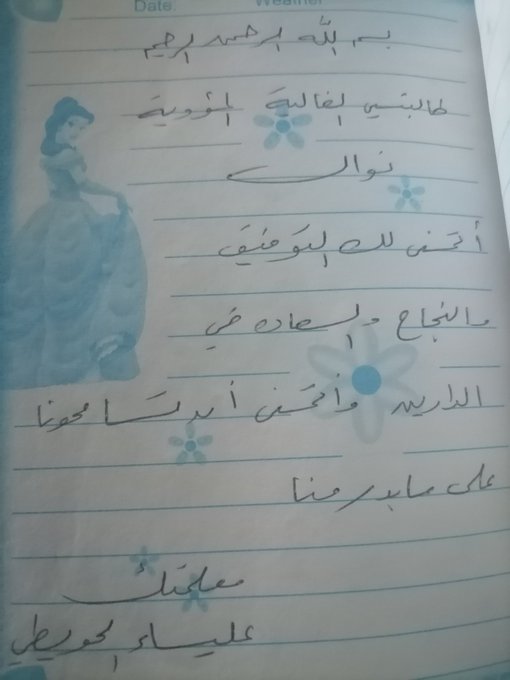 Date.
Weather
بسم الله الرحمن الرحيم
طالبتي الغالية المؤدبة
نوال
أتمنى لك التوفيق
والنجاح والسعاده في
الدارين وأتمنى أن تسامحونا
على مابدر منا
معلمتك
علياء الحويطي